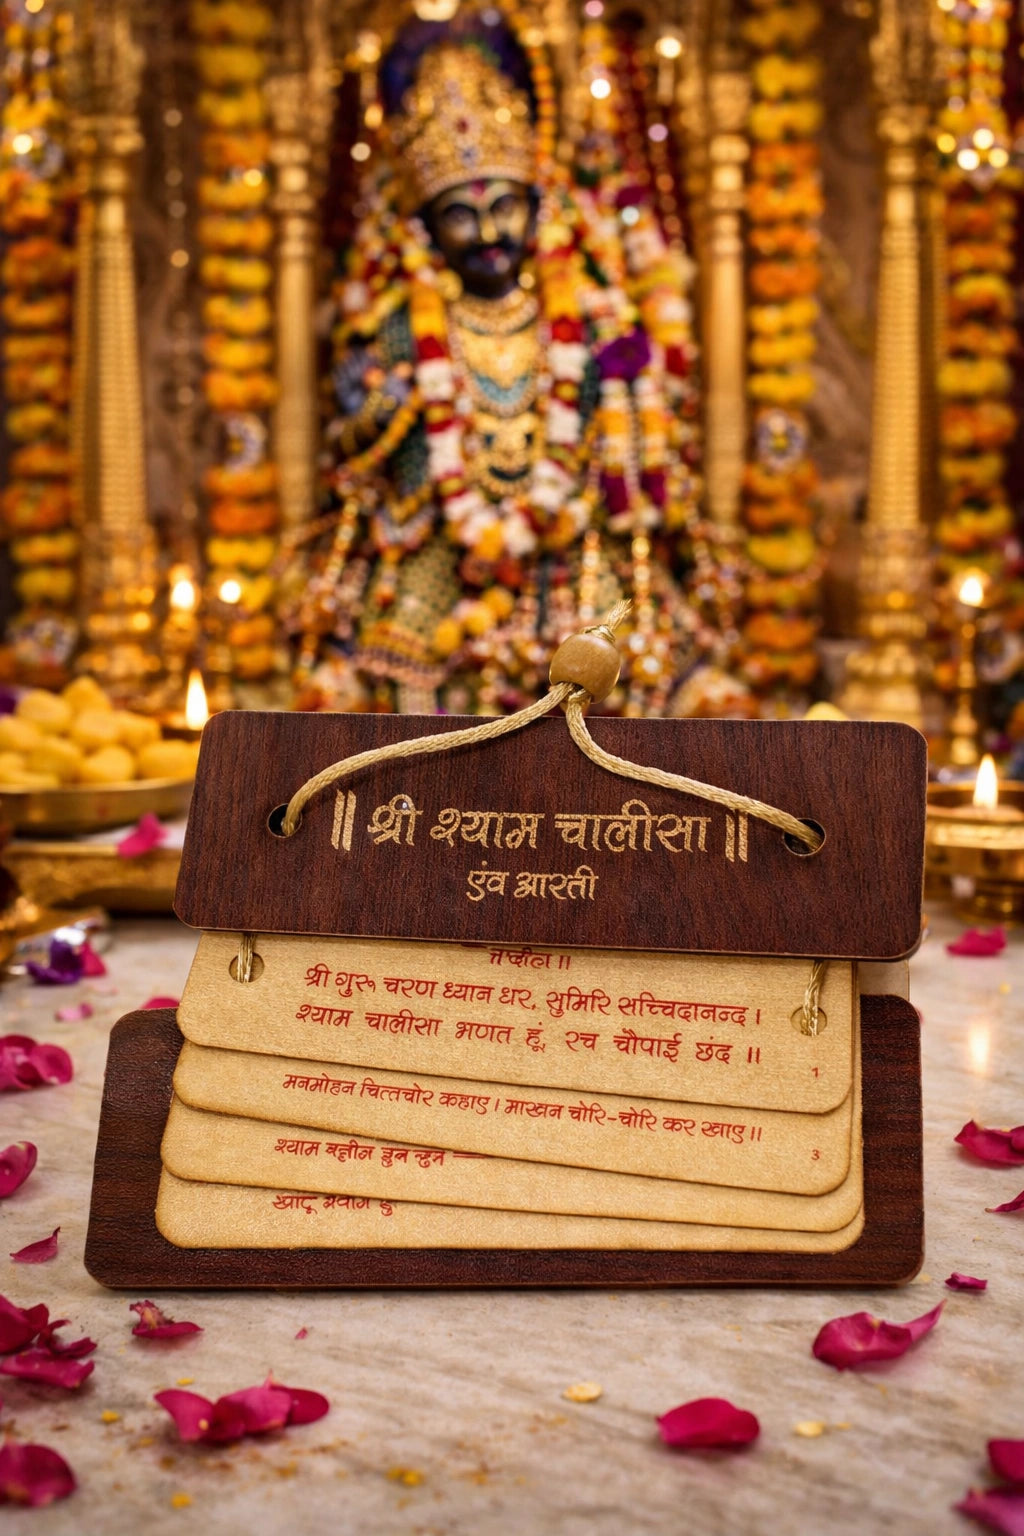 ॥ श्री श्याम चालीसा ॥
एंव आरती
श्री गुरु चरण ध्यान धर, सुमिरि सच्चिदानन्द।
श्याम चालीसा भणत हूं, रच चौपाई छंद ॥
1
मनमोहन चित्तचोर कहाए। माखन चोरि-चोरि कर खाए॥
3
श्याम